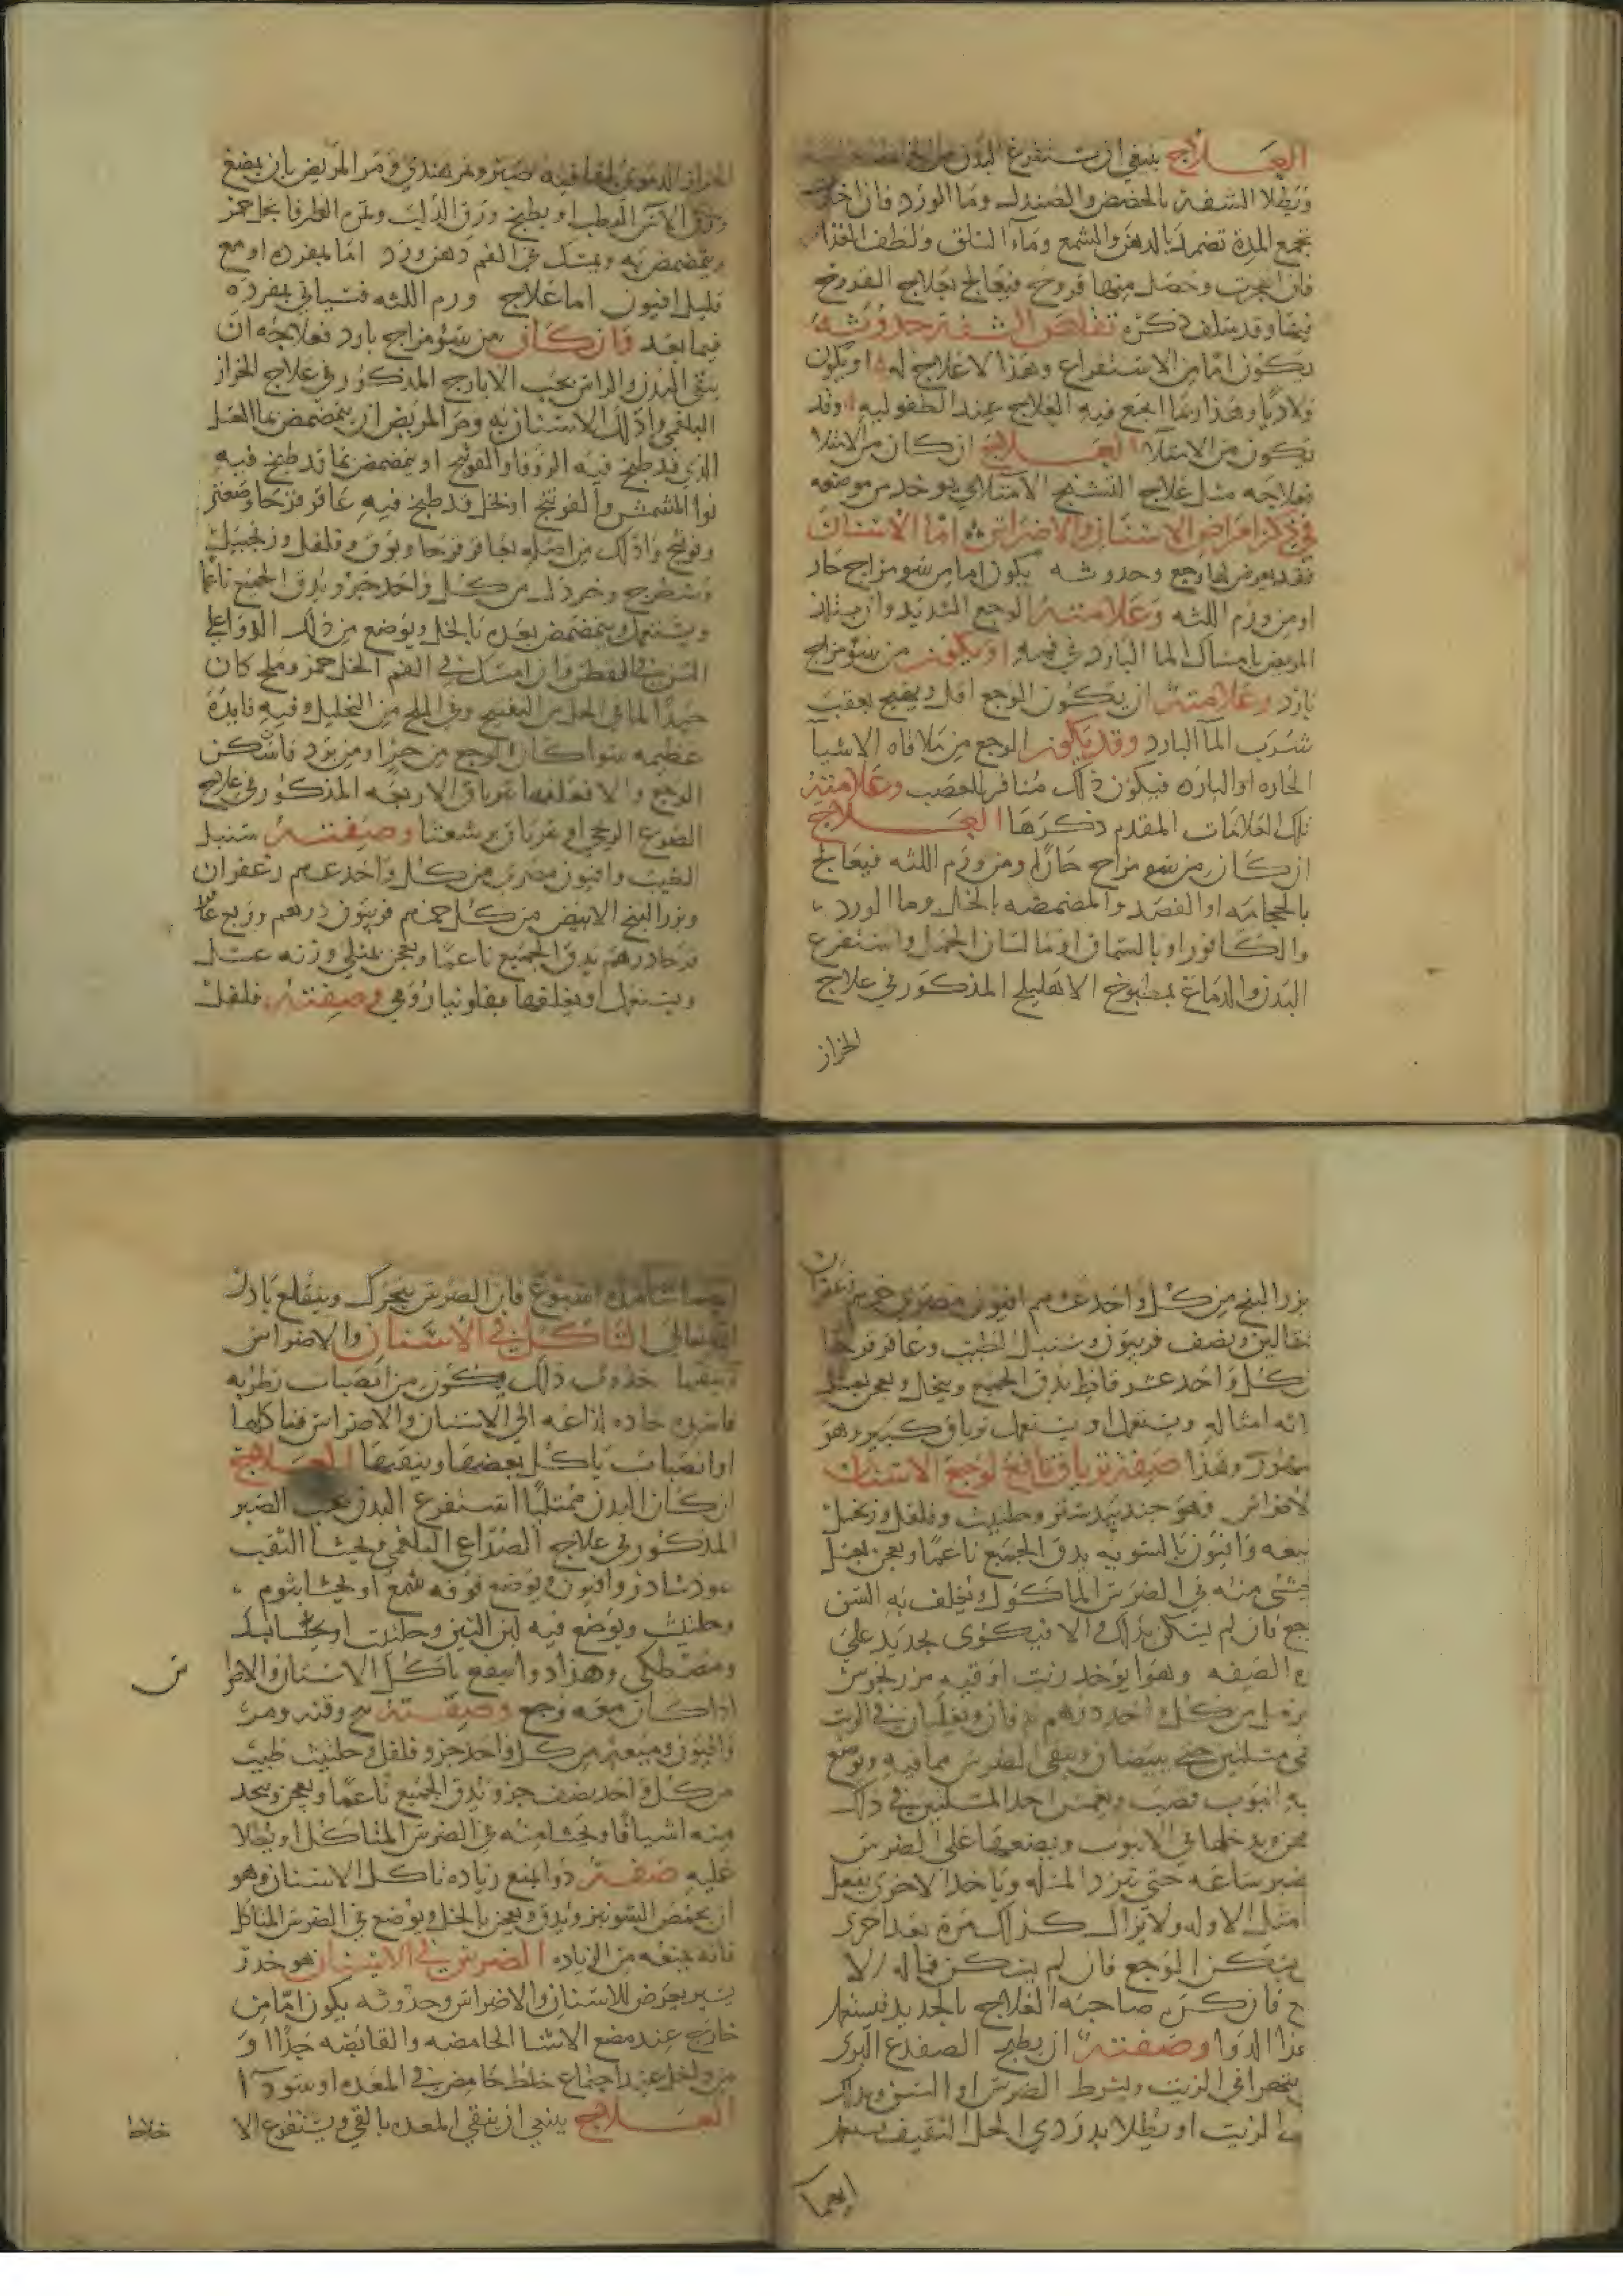 العــلاج ينبغي ان تستفرغ البدن من الخلط
وتطلا الشفة بالحضض والصندل وما الورد فان اخذت
تجمع المدة تضمد بالدهن والشمع وماء السلق ولطف الغذا
فان انفجرت وحصل منها قروح فيعالج بعلاج القروح
فيما وقد سلف ذكره تقلص الشفة حدوثه
يكون اما من الاستفراغ وهذا لا علاج له او يكون
ولاديا وهذا ربما انجع فيه العلاج عند الطفوليه وقد
يكون من الامتلا العــلاج ان كان من الامتلا
فعلاجه مثل علاج التشنج الامتلاي يوخد من موضعه
في ذكر امراض الاسنان والاضراس اما الاسنان
فقد يعرض لها وجع وحدوثه يكون اما من سو مزاج حار
او من ورم اللثه وعلامته الوجع الشديد وان يستلذ
المريض بامساك الما البارد في فمه او يكون من سو مزاج
بارد وعلامته ان يكون الوجع اقل ويهيج بعقب
شرب الما البارد وقد يكون الوجع من ملاقاه الاشيا
الحاره او البارده فيكون ذلك منافر للعصب وعلامته
تلك العلامات المقدم ذكرها العــلاج
ان كان من سو مزاج حار او من ورم اللثه فيعالج
بالحجامه او الفصد والمضمضه بالخل وما الورد
والكافور او بالسماق او ما لسان الحمل واستفرغ
البدن والدماغ بمطبوخ الاهليلج المذكور في علاج
الحزاز
الحزاز الدموي ملقا فيه صبر وتمر هندي ومر المريض بان يمضغ
ورق الاس الرطب او يطبخ ورق الدلب وثمره الطرفا بخل خمر
ويتمضمض به ويمسك في الفم دهن ورد اما بمفرده او مع
قليل افيون اما علاج ورم اللثه فسياتي بمفرده
فيما بعد فان كان من سو مزاج بارد فعلاجه ان
ينقي البدن والراس بحب الايارج المذكور في علاج الحزاز
البلغمي وادلك الاسنان به ومر المريض ان يتمضمض بما العسل
الذي قد طبخ فيه الزوفا والفوتنج او يتمضمض بما قد طبخ فيه
نوا المشمش والفوتنج او بخل قد طبخ فيه عاقر قرحا وصعتر
وفوتنج وادلك من اصله بعاقر قرحا وبورق وفلفل وزنجبيل
وشيطرج وخردل من كل واحد جزو يدق الجميع ناعما
ويستعمل ويتمضمض بعده بالخل ويوضع من ذلك الدوا على
السن في القطن وان امسك في الفم الخل خمر وملح كان
جيدا لما في الخل من التفتيح وفي الملح من التحليل وفيه فايدة
عظيمه سوا كان الوجع من حر او من برد فان سكن
الوجع والا فعلفها بترياق الاربعه المذكور في علاج
الصرع الريحي او بترياق برشعثا وصفته سنبل
الطيب وافيون مصري من كل واحد درهم زعفران
وبزر البنج الابيض من كل فربيون درهم وربع عاقر
قرحا درهم يدق الجميع ناعما ويعجن بمثلي وزنه عسل
ويستعمل او يعلفها بفلونيا رومي وصفته فلفل
بزر البنج من كل واحد افيون مصري زعفران
مثقالين ونصف فربيون وسنبل الطيب وعاقر قرحا
من كل واحد عشر قراط يدق الجميع وينخل ويعجن بعسل
امثاله ويستعمل او يستعمل ترياق كبير وهو
مشهور وهذا صفة ترياق نافع لوجع الاسنان
والاضراس وهو جندبيدستر وحلتيث وفلفل وزنجبيل
وميعه وافيون بالسويه يدق الجميع ناعما ويعجن بعسل
ويحشى منه في الضرس الماكول ويغلف به السن
الوجع فان لم يسكن بذلك والا فيكوى بحديد على
هذه الصفه وهو ان يوخد زيت اوقيه مرزنجوش
وحرمل من كل واحد درهم يدقان ويغليان في الزيت
مسلتين حتى يبيضان وينقى الضرس مما فيه ويوضع
عليه انبوب قصب ويغمس احد المسلتين في ذلك
الدهن ويدخلها في الانبوب ويضعها على الضرس
ويصبر ساعه حتى تبرد المسله وياخذ الاخرى يفعل
مثل الاوله ولا يزال كذلك مرة بعد اخرى
حتى يسكن الوجع فان لم يسكن فماله الا
القلع فان كره صاحبه العلاج بالحديد فيستعمل
هذا الدوا وصفته ان يطبخ الضفدع البري
الاخضر في الزيت ويشرط الضرس او السن ويدلك
بذلك الزيت او يطلا بدردي الخل الثقيف يستعمل
ايضا
ايضا اسبوع فان الضرس يتحرك وينقلع باذن
الله تعالى التاكل في الاسنان والاضراس
وتثقبها حدوث ذلك يكون من انصباب رطوبه
فاسده حاده لذاعه الى الاسنان والاضراس فتاكلها
او انصباب ياكل بعضها ويثقبها العــلاج
ان كان البدن ممتليا استفرغ البدن بحب الصبر
المذكور في علاج الصداع البلغمي ويحشا الثقب
نوشادر وافيون ويوضع فوقه شمع او يحشا بثوم
وحلتيث ويوضع فيه لبن التين وحلتيت او يحشا بسك
ومصطكى وهذا دوا ينفع تاكل الاسنان والاضرا
س
اذا كان معه وجع وصفته قنه ومر
وافيون وميعه من كل واحد جزو فلفل وحلتيث طيب
من كل واحد نصف جزو يدق الجميع ناعما ويعجن ويتخد
منه اشيافا ويحشا منه في الضرس المتاكل او يطلا
عليه صفة دوا يمنع زيادة تاكل الاسنان وهو
ان يحمص الشونيز ويدق ويعجن بالخل ويوضع في الضرس المتاكل
فانه يمنعه من الزياده الضرس في الاسنان هو خدر
يسير يعرض للاسنان والاضراس وحدوثه يكون اما من
خارج عند مضغ الاشيا الحامضه والقابضه جدا او
من داخل عند اجتماع خلط حامض في المعده او سودا
العــلاج ينبغي ان ينقي المعده بالقي ويستفرغ الا
خلاط